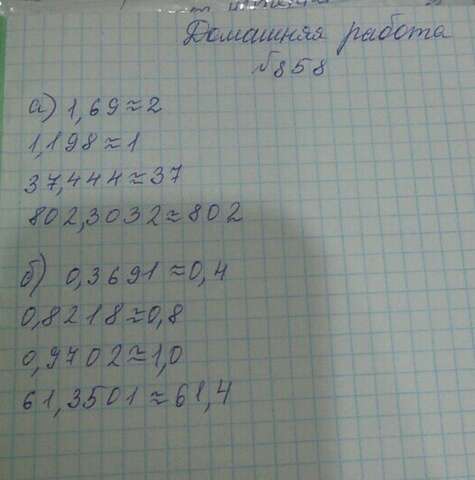 Домашняя работа
№858
а) 1,69≈2
1,198≈1
37,444≈37
802,3032≈802
б) 0,3691≈0,4
0,8218≈0,8
0,9702≈1,0
61,3501≈61,4